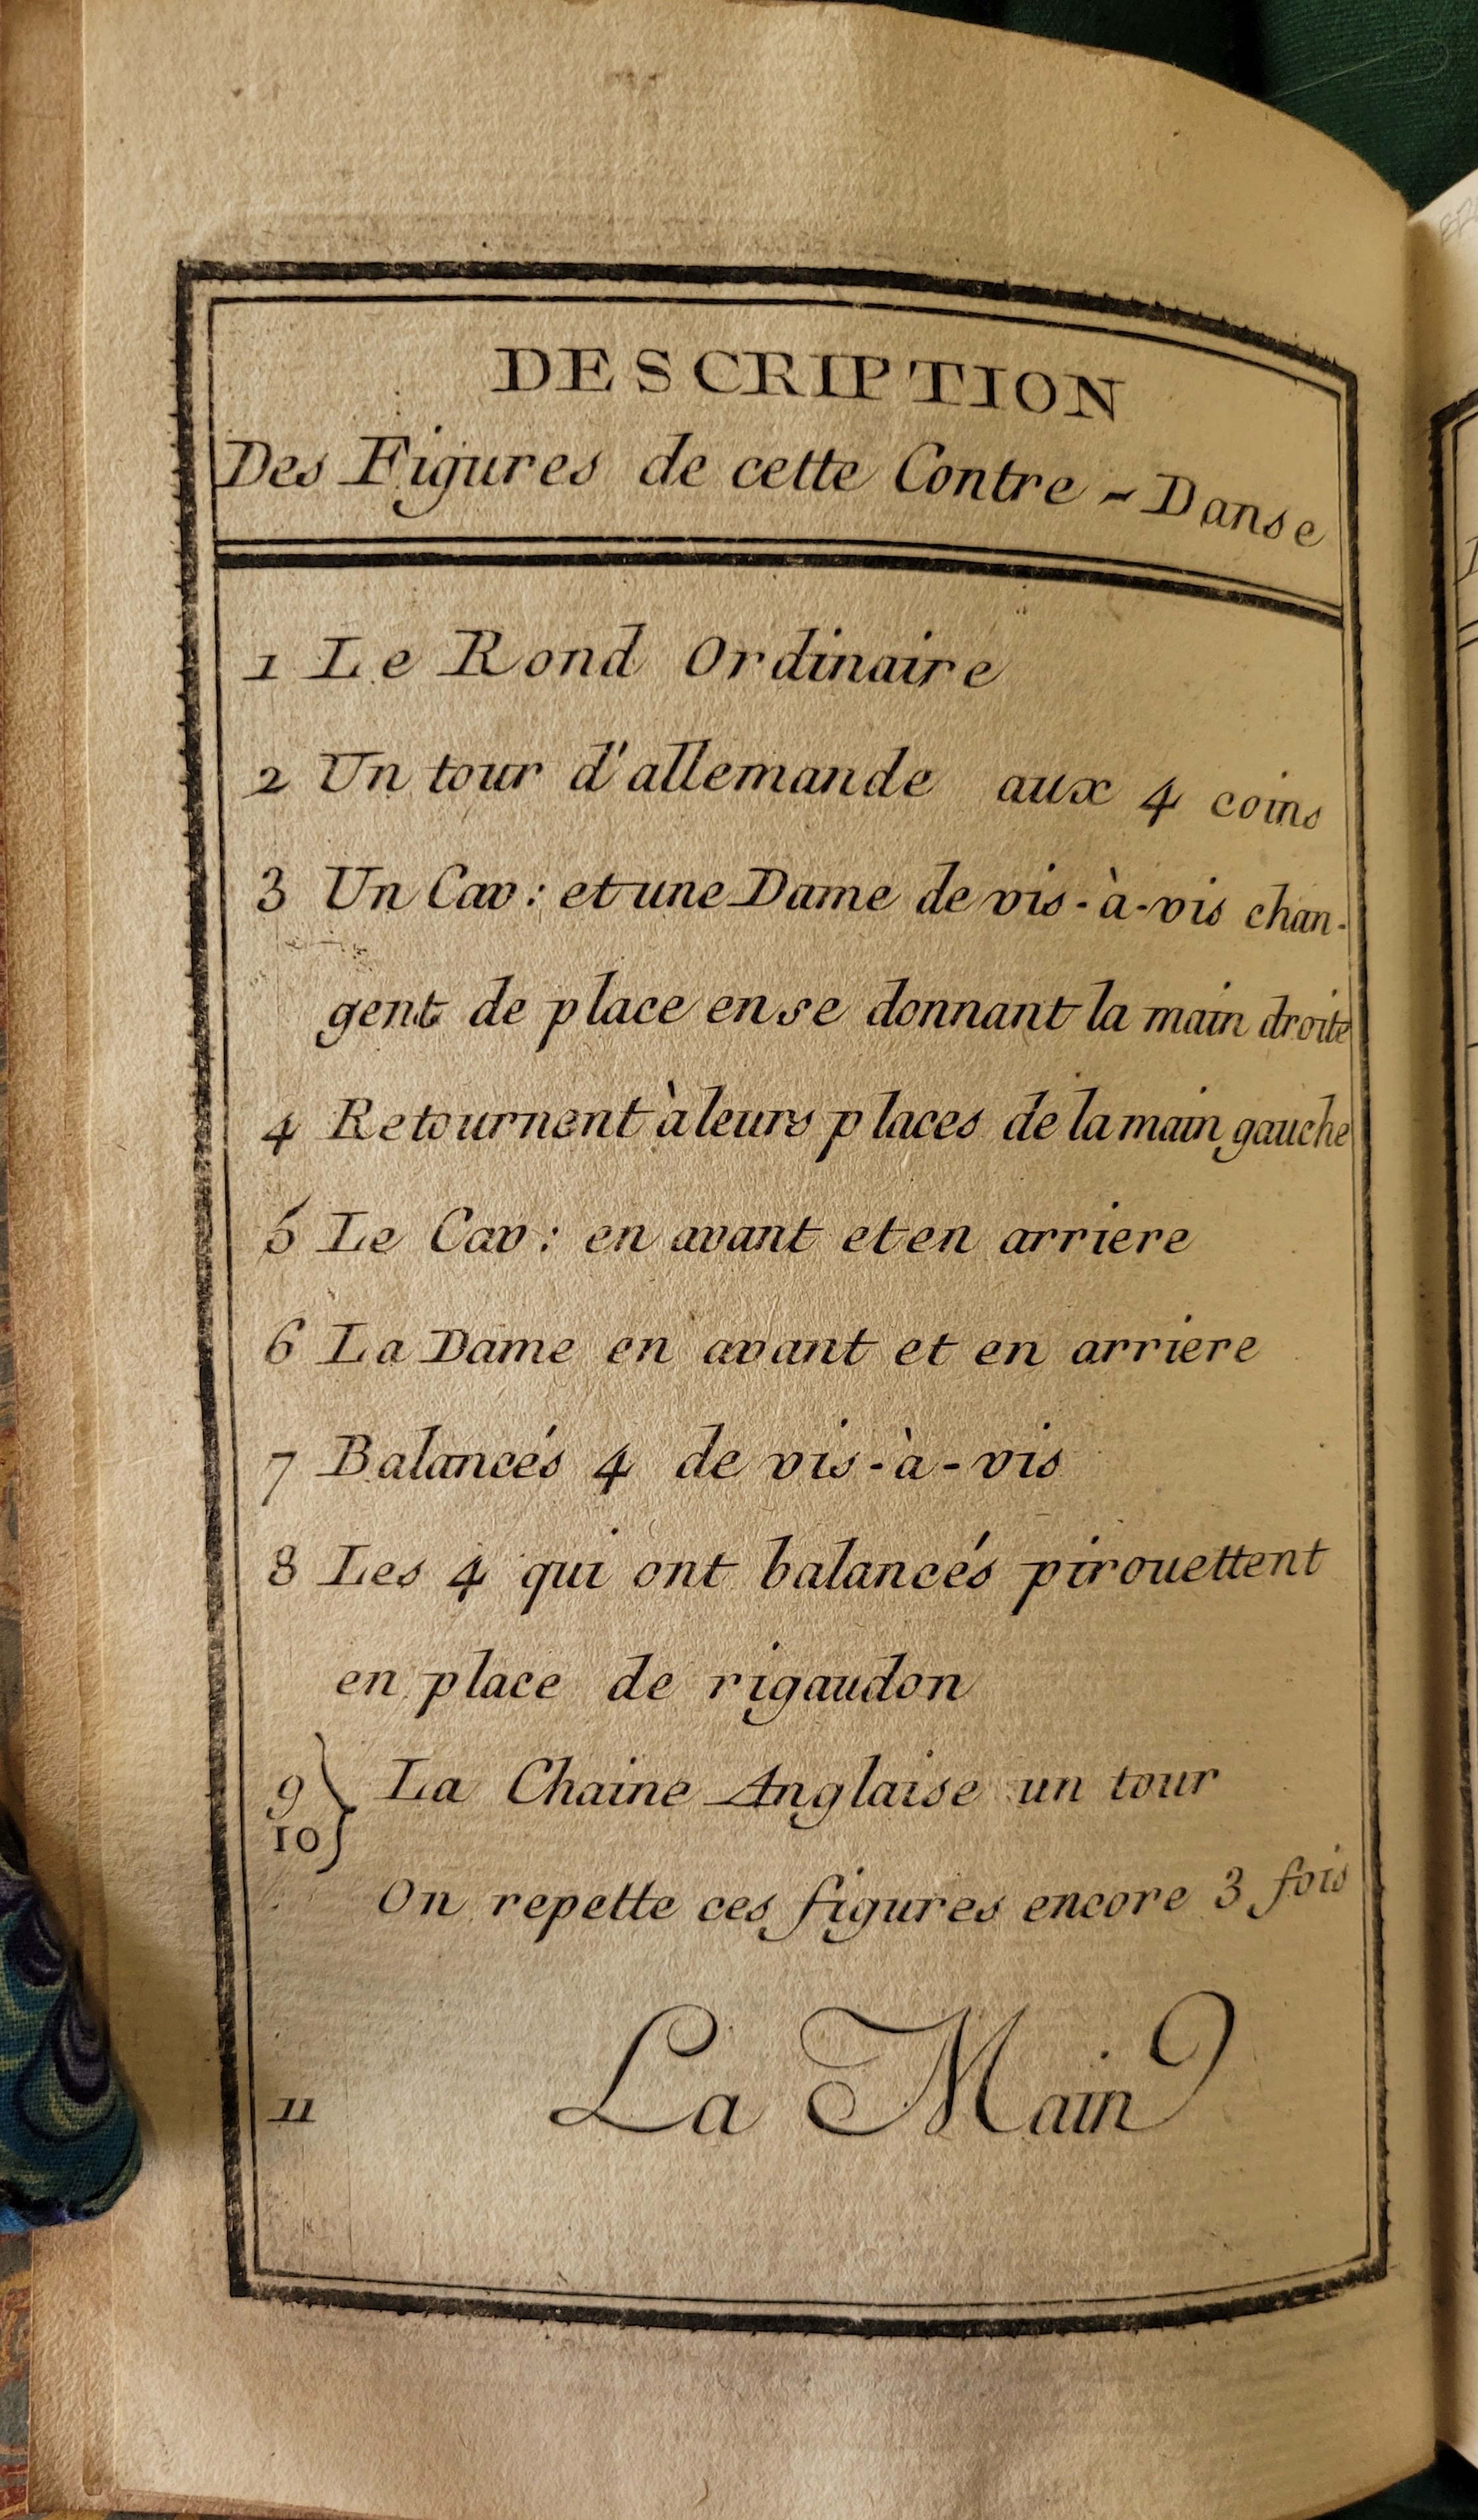 DESCRIPTION
Des Figures de cette Contre-Danse
1 Le Rond Ordinaire
2 Un tour d'allemande aux 4 coins
3 Un Cav: et une Dame de vis-à-vis chan-
gent de place en se donnant la main droite
4 Retournent à leurs places de la main gauche
5 Le Cav: en avant et en arriere
6 La Dame en avant et en arriere
7 Balancés 4 de vis-à-vis
8 Les 4 qui ont balancés pirouettent
en place de rigaudon
9
10} La Chaine Anglaise un tour
On repette ces figures encore 3 fois
11 La Main